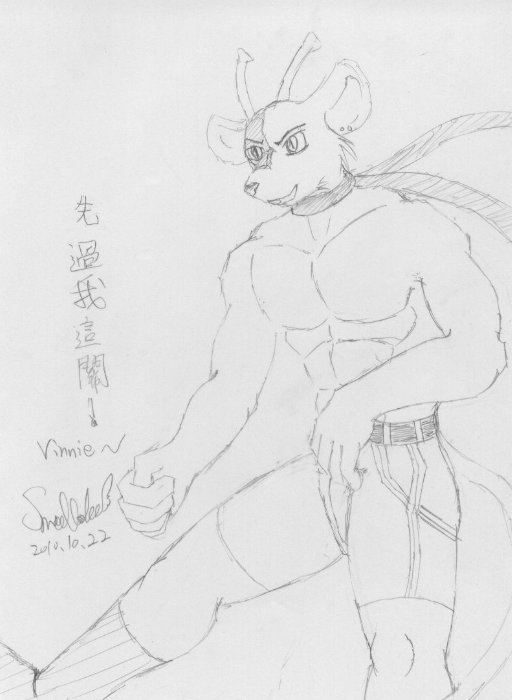 先過我這關！
Vinnie~
2010.10.22